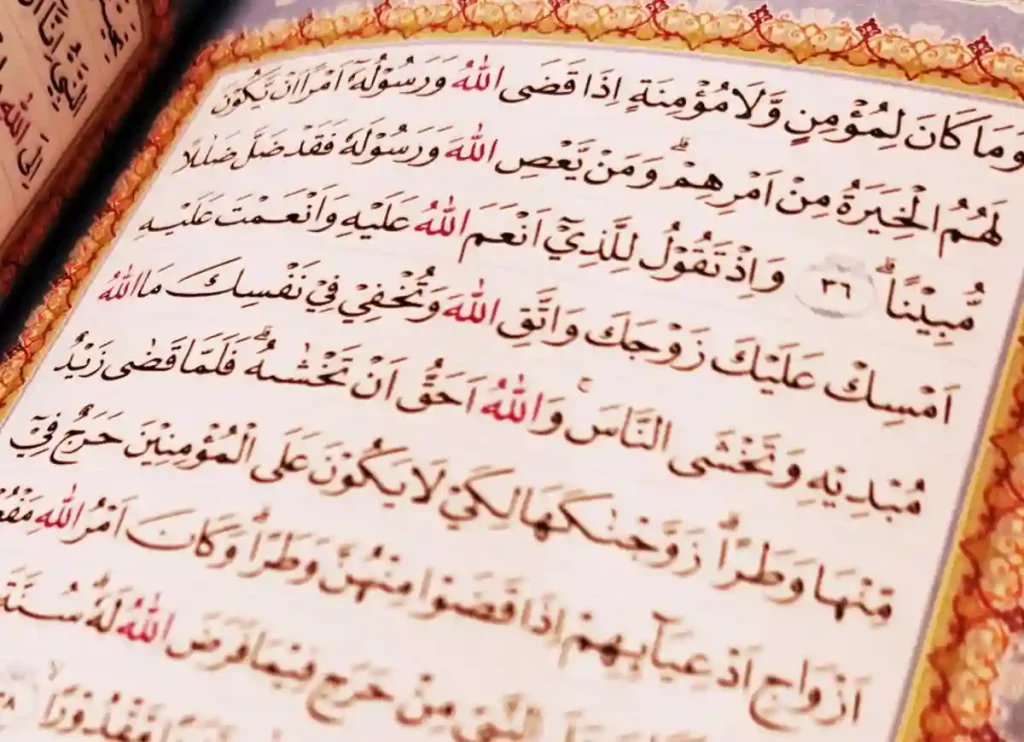 وَمَا كَانَ لِمُؤْمِنٍ وَّلَا مُؤْمِنَةٍ اِذَا قَضَى اللهُ وَرَسُوْلُهٗٓ اَمْرًا اَنْ تَكُوْنَ
لَهُمُ الْخِيَرَةُ مِنْ اَمْرِهِمْ ۗوَمَنْ يَّعْصِ اللهَ وَرَسُوْلَهٗ فَقَدْ ضَلَّ ضَلٰلًا
مُّبِيْنًاۗ ٣٦ وَاِذْ تَقُوْلُ لِلَّذِيْٓ اَنْعَمَ اللهُ عَلَيْهِ وَاَنْعَمْتَ عَلَيْهِ
اَمْسِكْ عَلَيْكَ زَوْجَكَ وَاتَّقِ اللهَ وَتُخْفِيْ فِيْ نَفْسِكَ مَا اللهُ
مُبْدِيْهِ وَتَخْشَى النَّاسَۚ وَاللهُ اَحَقُّ اَنْ تَخْشٰىهُ ۗ فَلَمَّا قَضٰى زَيْدٌ
مِّنْهَا وَطَرًاۗ زَوَّجْنٰكَهَا لِكَيْ لَا يَكُوْنَ عَلَى الْمُؤْمِنِيْنَ حَرَجٌ فِيْٓ
اَزْوَاجِ اَدْعِيَاۤىِٕهِمْ اِذَا قَضَوْا مِنْهُنَّ وَطَرًاۗ وَكَانَ اَمْرُ اللهِ
النَّبِيِّ مِنْ حَرَجٍ فِيْمَا فَرَضَ اللهُ لَهٗ ۗسُنَّةَ